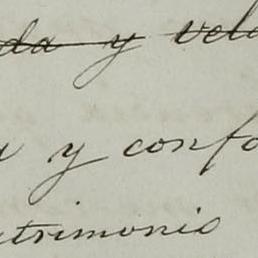 da y vela
a y confo
atrimonio